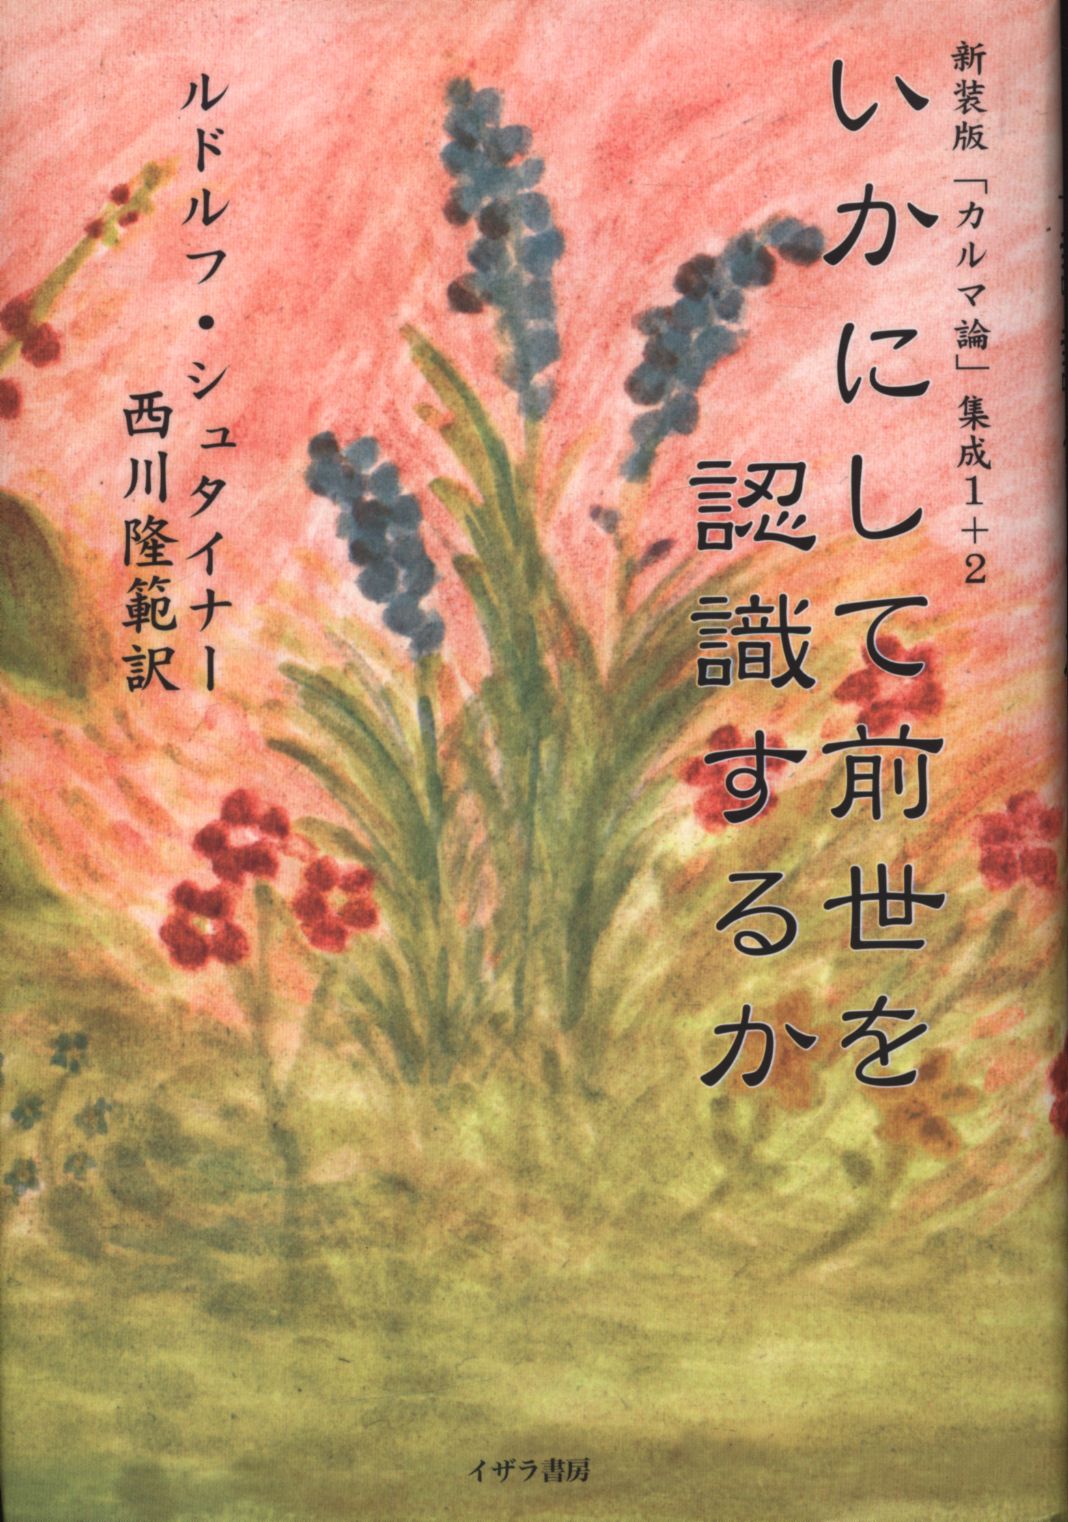 新装版「カルマ論」集成1+2
いかにして前世を
認識するか
ルドルフ・シュタイナー
西川隆範訳
イザラ書房